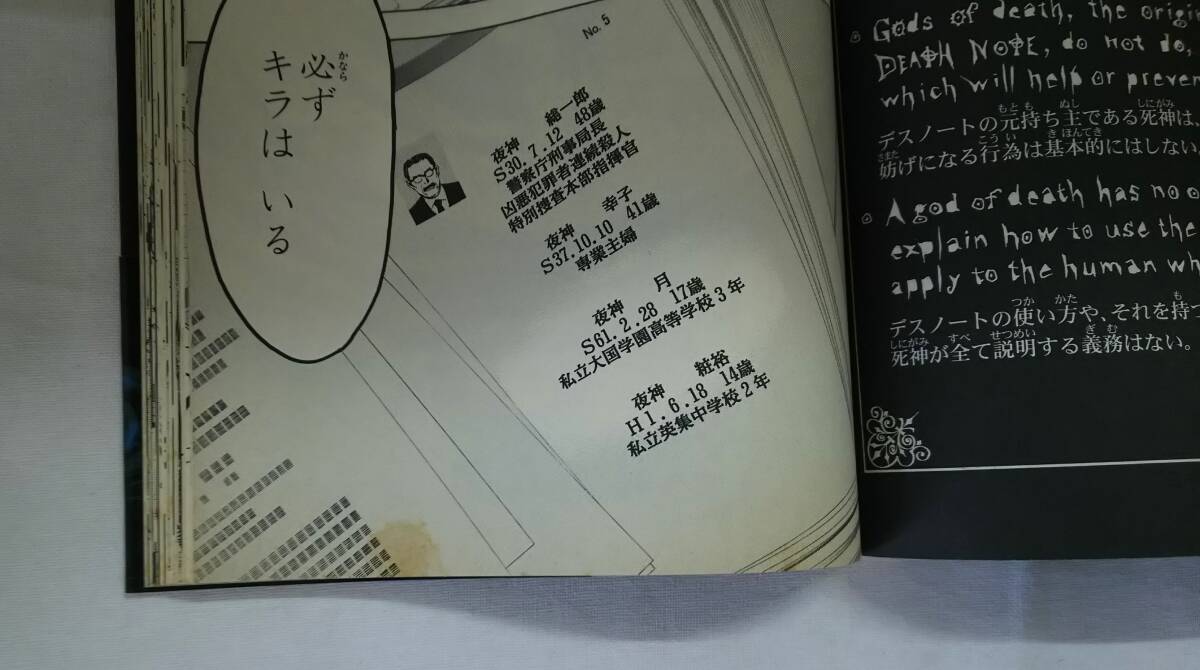 必ず
かなら
キラは いる
No. 5
夜神 総一郎
S30. 7. 12 48歳
警察庁刑事局長
凶悪犯罪者連続殺人
特別捜査本部指揮官
夜神 幸子
S37. 10. 10 41歳
専業主婦
夜神 月
S61. 2. 28 17歳
私立大国学園高等学校3年
夜神 粧裕
H1. 6. 18 14歳
私立英集中学校2年
Gods of death, the origi
DEATH NOTE, do not do,
which will help or preven
もと も ぬし しにがみ
デスノートの元持ち主である死神は、
さまた こうい きほんてき
妨げになる行為は基本的にはしない。
A god of death has no o
explain how to use the
apply to the human wh
つか かた も
デスノートの使い方や、それを持つ
しにがみ すべ せつめい ぎむ
死神が全て説明する義務はない。